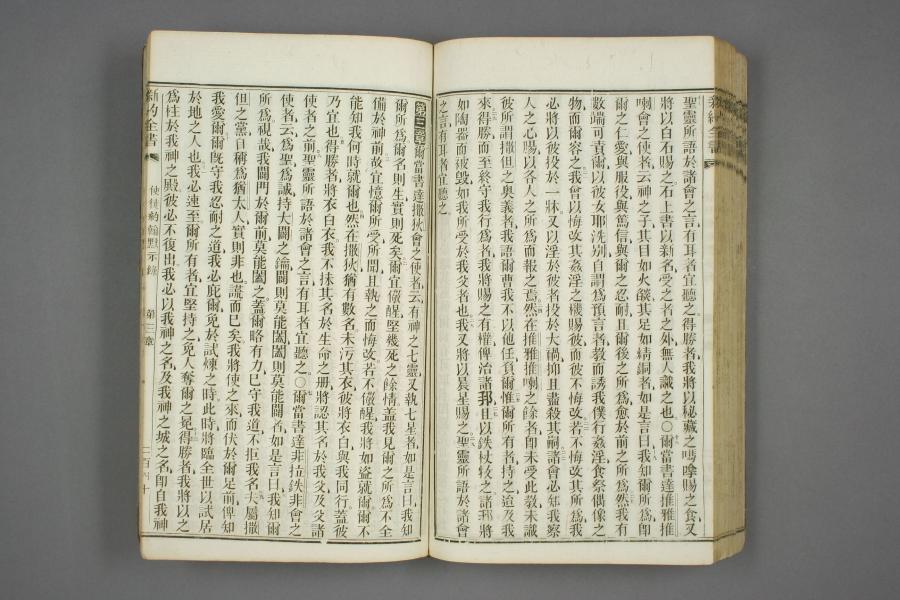 聖靈所語於諸會之言有耳者宜聽之得勝者我將以秘藏之嗎嗱賜之食又
將以白石賜之石上書以新名受之者之外無人識之也〇爾當書達推雅推
喇會之使者云神之子其目如火燄其足如精銅者如是言曰我知爾所為卽
爾之仁愛與服役與篤信與爾之忍耐且爾後之所為愈於前之所為然我有
數端可責爾以彼女耶洗別自謂為預言者教而誘我僕行姦淫食祭偶像之
物而爾容之我曾以悔改其姦淫之機賜彼而彼不悔改若不悔改其所為我
必將以彼投於一牀又以淫於彼者投於大禍抑且盡殺其嗣諸會必知我察
人之心賜以各人之所為而報之焉然在推雅推喇之餘者卽未受此教未識
彼所謂撒但之奧義者我語爾曹我不以他任負爾惟爾所有者持之迨及我
來得勝而至終守我行為者我將賜之有權俾治諸邦且以鉄杖牧之諸邦將
如陶器而破毀如我所受於我父者也我又將以晨星賜之聖靈所語於諸會
之言有耳者宜聽之
第三章爾當書達撒狄會之使者云有神之七靈又執七星者如是言曰我知
爾所為爾名則生實則死矣爾宜儆醒堅幾死之餘情蓋我見爾之所為不全
備於神前故宜憶爾所受所聞且執之而悔改若不儆醒我將如盜就爾爾不
能知我何時就爾也然在撒狄猶有數名未污其衣彼將衣白與我同行蓋彼
乃宜也得勝者將衣白衣我不抹其名於生命之冊將認其名於我父及父諸
使者之前聖靈所語於諸會之言有耳者宜聽之〇爾當書達非拉鉄非會之
使者云為聖為誠持大闢之鑰闢則莫能闔闔則莫能闢者如是言曰我知爾
所為視哉我闢門於爾前莫能闔之蓋爾略有力已守我道不拒我名夫屬撒
但之黨自稱為猶太人實則非也謊而已矣我將使之來而伏於爾足前俾知
我愛爾爾旣守我忍耐之道我必庇爾免於試煉之時此時將臨全世以試居
於地之人也我必速至爾所有者宜堅持之免人奪爾之冕得勝者我將以之
為柱於我神之殿彼必不復出我必以我神之名及我神之城之名卽自我神
新約全書
使徒約翰默示錄
第三章
二百四十